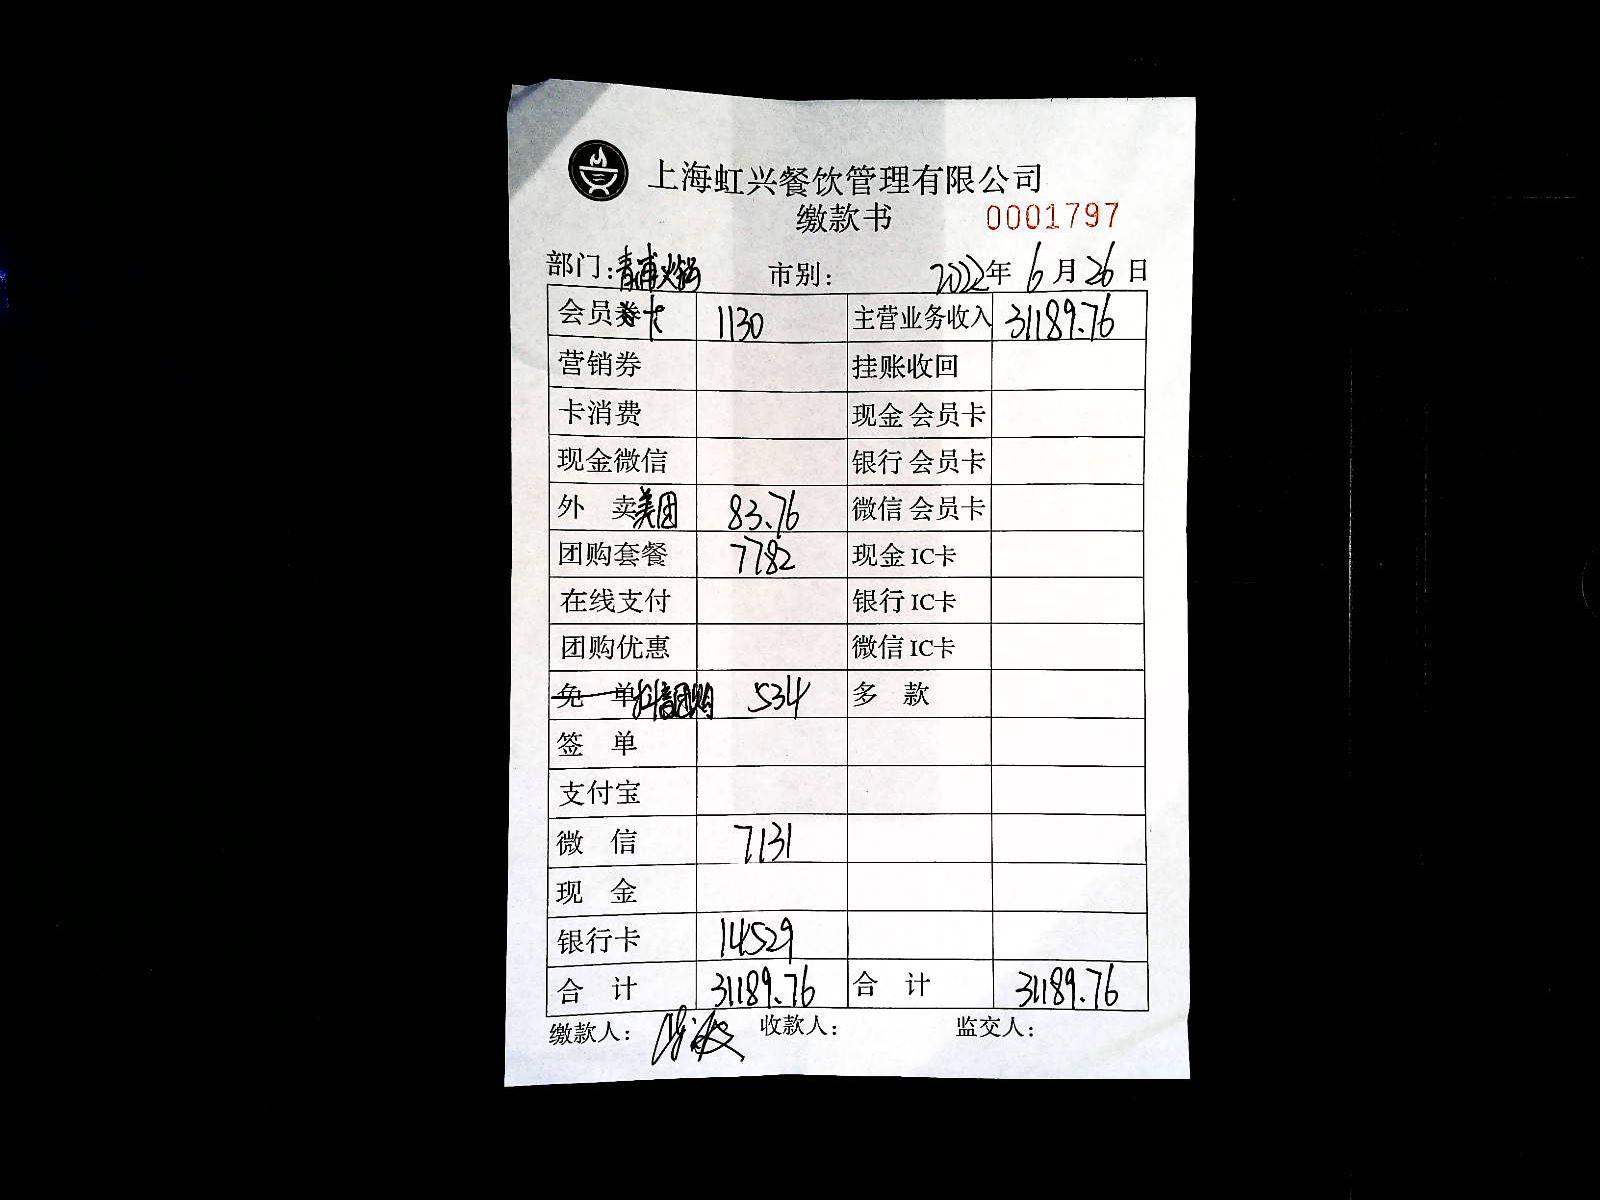 上海虹兴餐饮管理有限公司
缴款书 0001797
部门:青浦火锅 市别: 2022年 6月 26日
会员卡 1130 主营业务收入 31189.76
营销券 挂账收回
卡消费 现金 会员卡
现金微信 银行 会员卡
外 卖美团 83.76 微信 会员卡
团购套餐 7782 现金 IC卡
在线支付 银行 IC卡
团购优惠 微信 IC卡
免 单抖音团购 534 多 款
签 单
支付宝
微 信 7131
现 金
银行卡 14529
合 计 31189.76 合 计 31189.76
缴款人: 收款人: 监交人: